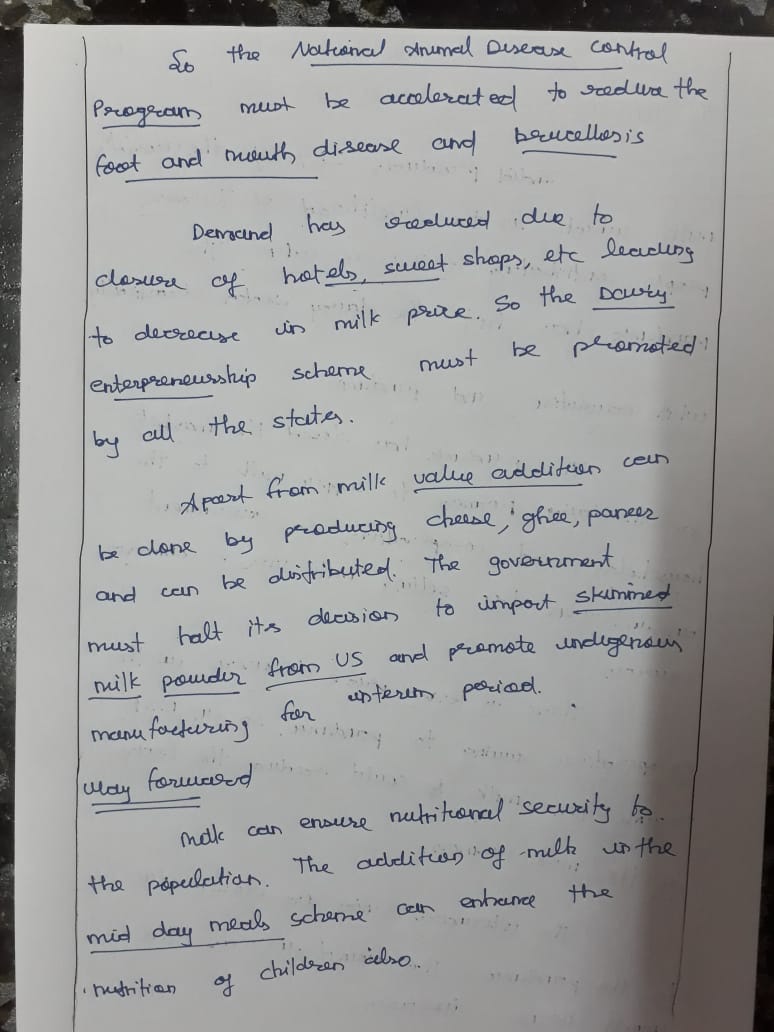 So the National Animal Disease Control
Program must be accelerated to reduce the
foot and mouth disease and brucellosis
Demand has reduced due to
closure of hotels, sweet shops, etc leading
to decrease in milk price. So the Dairy
enterpreneurship scheme must be promoted
by all the states.
Apart from milk value addition can
be done by producing cheese, ghee, paneer
and can be distributed. The government
must halt its decision to import skimmed
milk powder from US and promote indigenous
manufacturing for interim period.
Way forward
Milk can ensure nutritional security to
the population. The addition of milk in the
mid day meals scheme can enhance the
nutrition of children also.